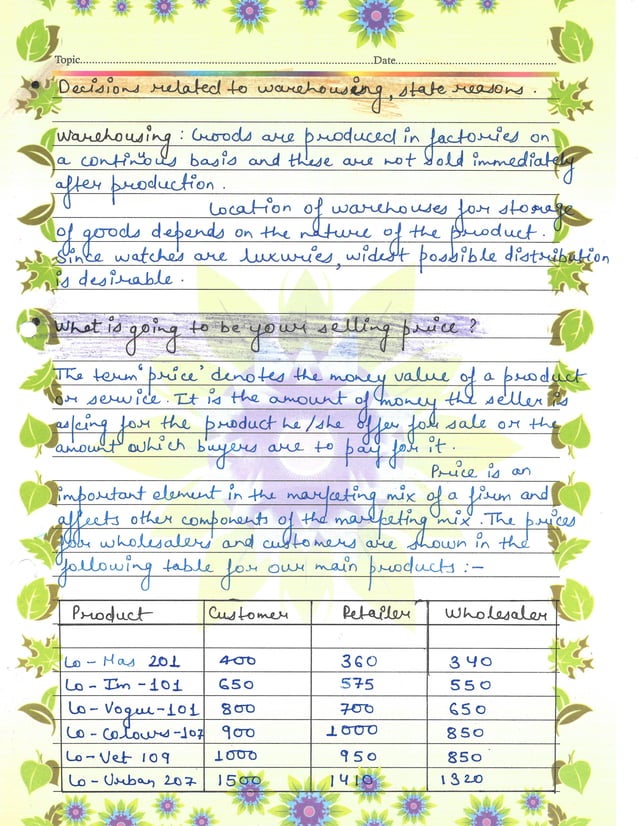 Topic Date
Decisions related to warehousing, state reasons.
Warehousing : Goods are produced in factories on
a continous basis and these are not sold immediately
after production.
Location of warehouses for storage
of goods depends on the nature of the product.
Since watches are luxuries, widest possible distribution
is desirable.
What is going to be your selling price ?
The term 'price' denotes the money value of a product
or service. It is the amount of money the seller is
asking for the product he/she offer for sale or the
amount which buyers are to pay for it.
Price is an
important element in the marketing mix of a firm and
affects other components of the marketing mix. The prices
for wholesalers and customers are shown in the
following table for our main products :-
Product Customer Retailer Wholesaler
Lo - Mas 201 400 360 340
Lo - Im - 101 650 575 550
Lo - Vogue - 101 800 700 650
Lo - Colours - 107 900 1000 850
Lo - Vet 109 1000 950 850
Lo - Urban 207 1500 1410 1320